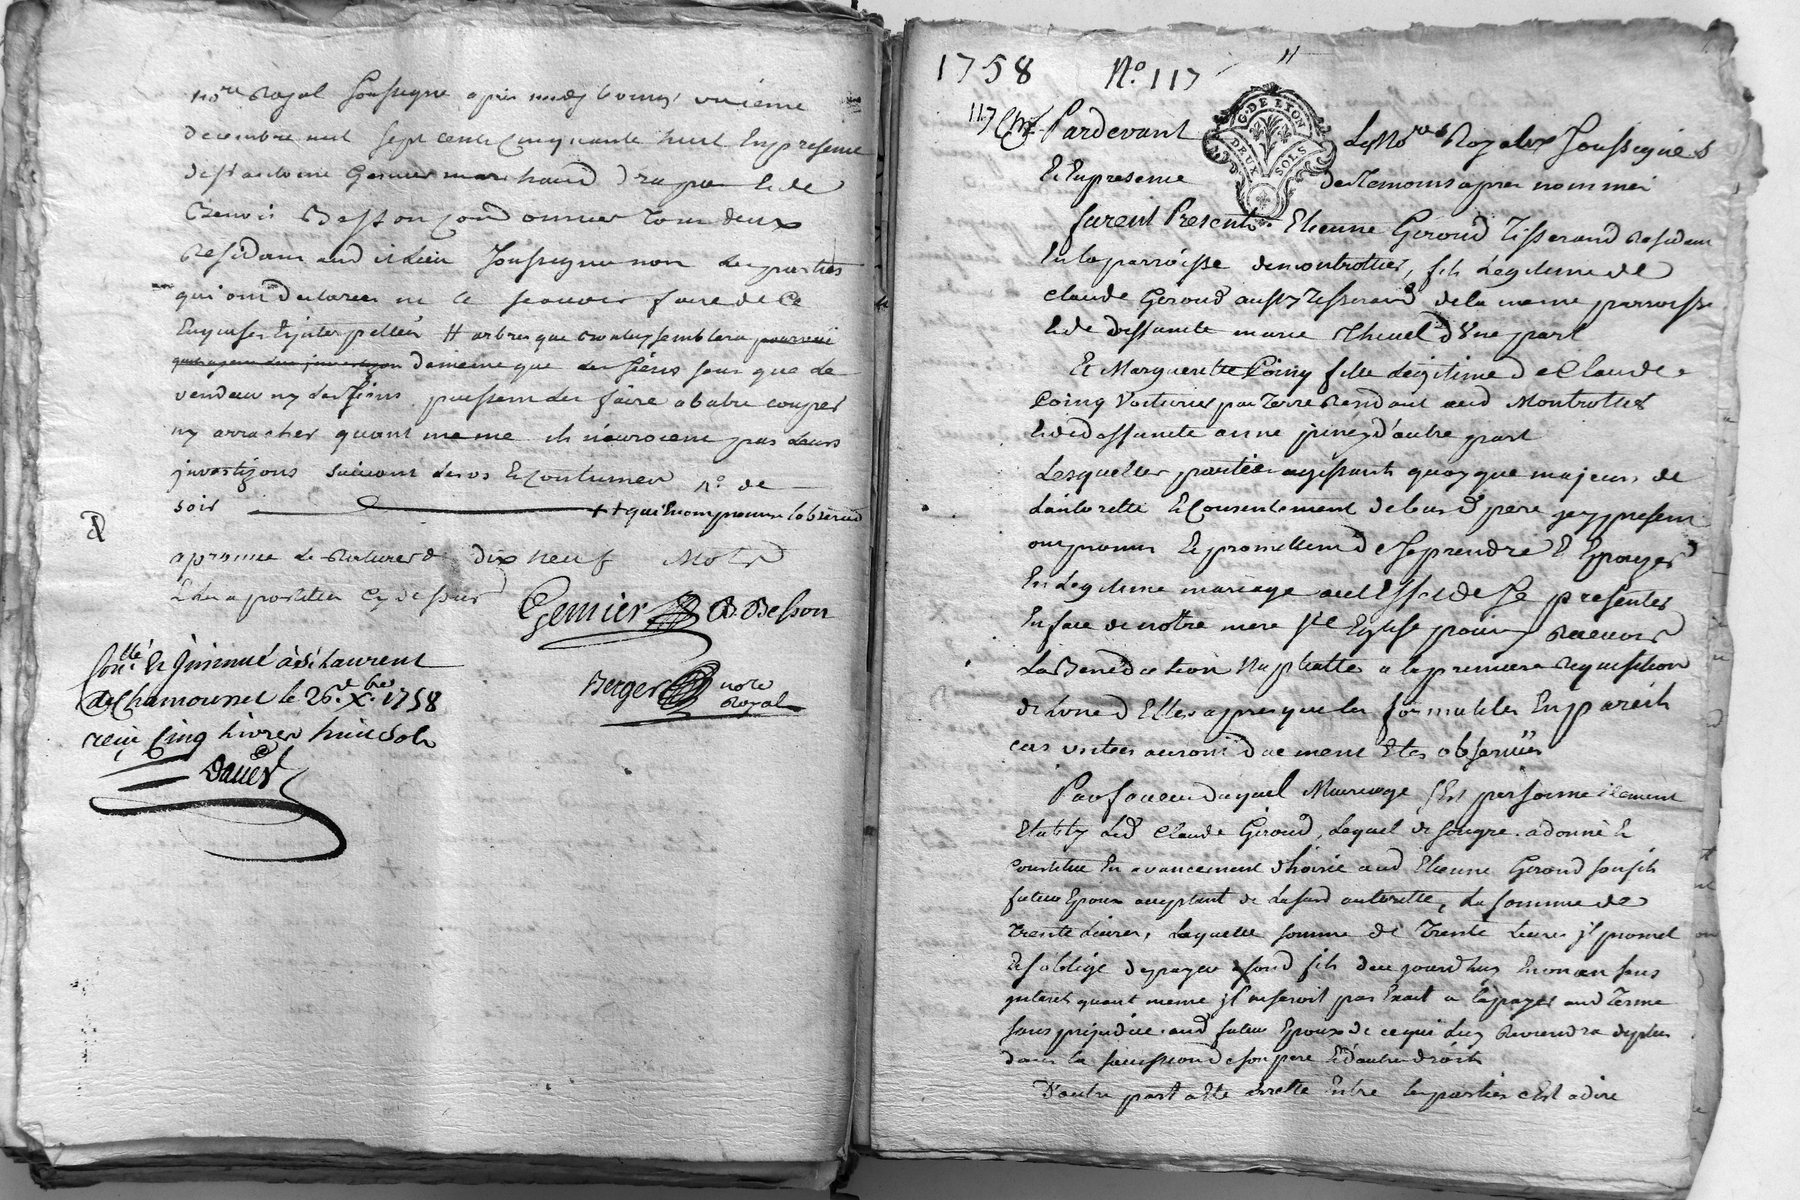 nore Royal soussigné apres midy le vingt unieme
decembre mil sept cents cinquante huit En presence
de sr antoine Genier marchand drapier & de
Benoit Besson cordonnier tous deux
Residant aud it Lieu soussignes non Les parties
qui ont declarees ne le sçavoir faire de ce
Enquises & interpellées # arbres que
de meme que des siens sans que le
vendeur ny les siens puissent les faire abatre couper
ny arracher quant meme ils n'auroient pas Leurs
suivant Les us & coutumes
soir ++ que
approuvé La Rature de dix neuf Mots
& Les apostilles Cy dessus
Genier B Besson
Berger nore Royal
Conllé Et Jnsinué à St Laurent
de Chamousset le 26e Xbre 1758
reçu Cinq Livres huit sols
1758 No. 117
117
G. DE LYON
DEUX SOLS
Pardevant Les Nores Royaux Soussignés
Et En presence des Temoins apres nommés
furent Presents Etienne Giroud Tisserand Residant
En la parroisse de montrottier, fils Legitime de
Claude Giroud aussy Tisserand de la meme parroisse
& de deffunte marie Thevel d'Une part
Et Margueritte Poing fille Legitime de Claude
Poing Voiturier par Terre Residant aud Montrottier
& de deffunte anne d'autre part
Lesquelles parties agissants quoy que majeurs de
L'autoritté & Consentement de leurs d pere
ont promis & promettent de se prendre & Epouser
En Legitime mariage aud Effet de se presenter
En face de notre mere Ste Eglise pour y Recevoir
La Benediction Nuptialle a la premiere Requisition
de L'une d'Elles apres que les formalités En pareils
cas usitées auront duement Etés observées
En faveur duquel Mariage s'Est personnellement
Etably Led Claude Giroud, Lequel de son gre a donné &
constitué En avancement d'hoirie aud Etienne Giroud son fils
futur Epoux acceptant de La susd autoritté, La somme de
Trente Livres, Laquelle somme de Trente Livres jl promet
& s'oblige de payer a sond fils d'aujourd'huy En un an sans
jnterets quant meme jl ne seroit pas Exact a la payer aud Terme
sans prejudice aud futur Epoux de ce qui luy Reviendra de plus
dans la succession de son pere & d'autres droits
D'autre part a Eté arretté Entre les parties c'Est a dire